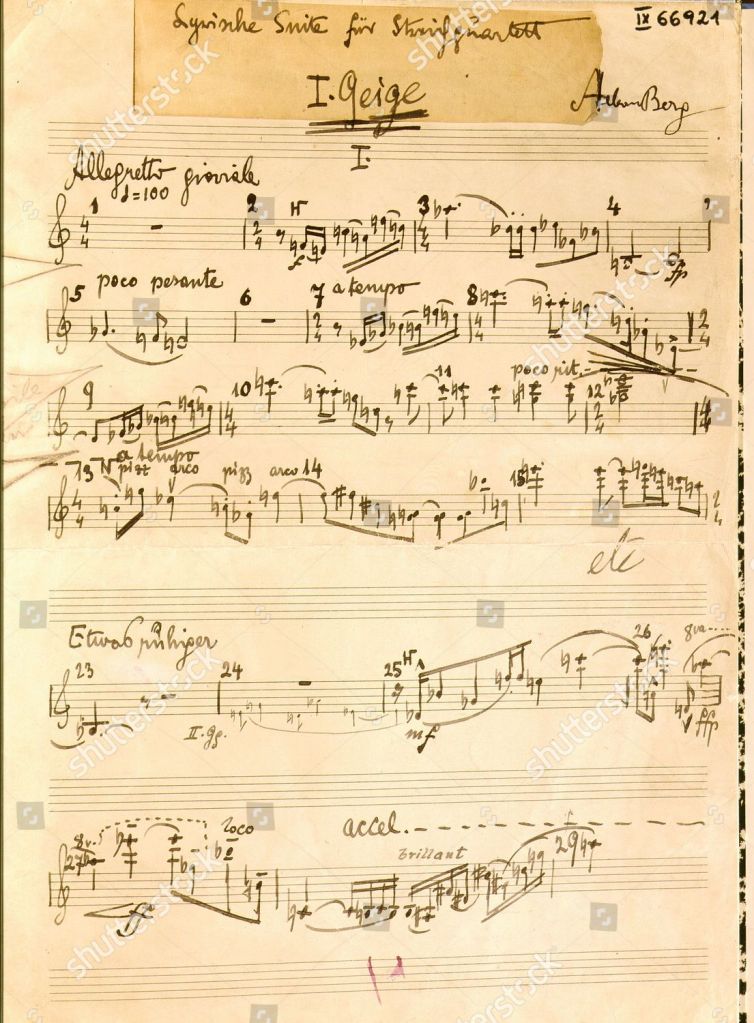 Lyrische Suite für Streichquartett
IX 66921
I. Geige
Alban Berg
I.
Allegretto gioviale
♩=100
1 2 H 3 4
4/4 2/4 4/4
f fp
poco pesante a tempo
5 6 7 8
2/4 4/4 2/4
poco rit.
9 10 11 12
4/4 2/4 4/4
a tempo
13 H pizz arco pizz arco 14 15
4/4 2/4
etc
Etwas ruhiger
23 24 25 H 26 8va
II. gg. mf ffp
8va loco accel.
27 brillant 29
ff
shutterstock